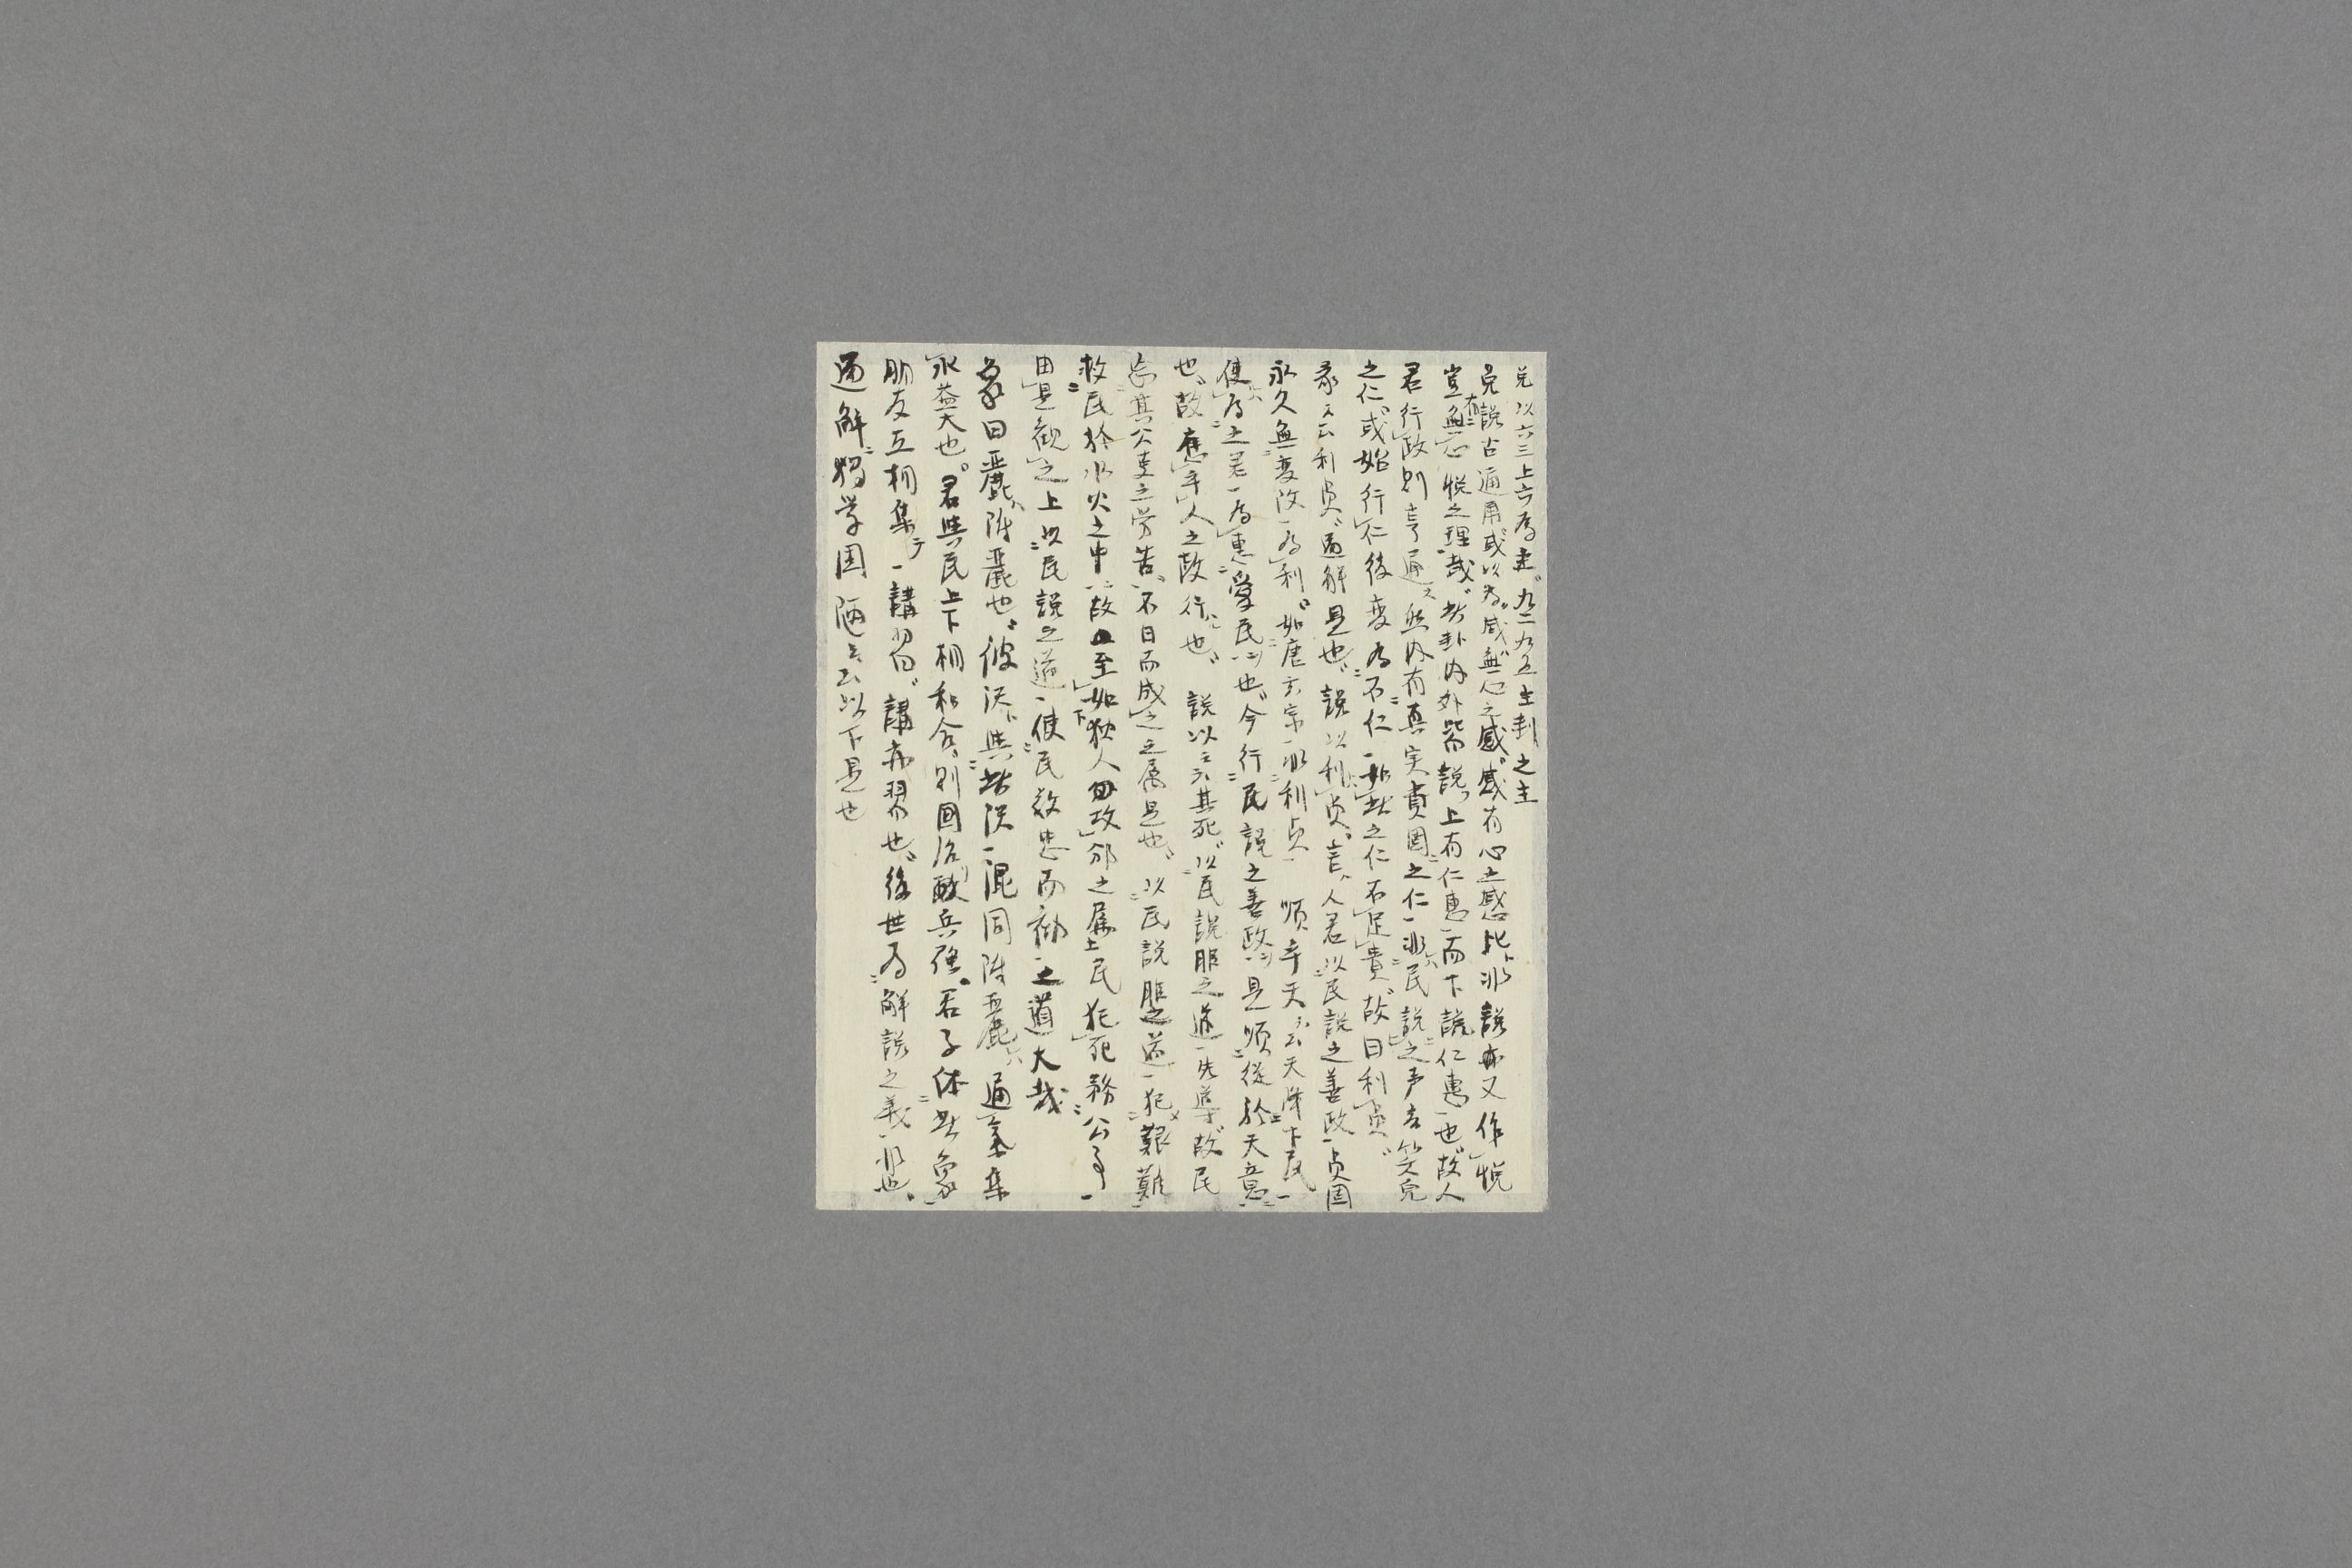 兌以六三上六為主〻九二九五主卦之主
兌説古通用或以為咸無心之感感有心之感比非説亦又作悦
豈無有心悦之理哉此卦内外皆説上有仁惠而下説仁惠也故人
君行政則亨通然内有真実貞固之仁非民説之声音笑兒
之仁或始行仁後変為不仁如此之仁不足貴故曰利貞
彖云云利貞通解是也説以利貞言人君以民説之善政貞固
永久無変改為利如唐玄宗非利貞 順乎天云云天降下民
使為之君為惠愛民也今行民説之善政是順従於天意
也故應乎人之政行也 説以云云其死以民説服之道先導故民
忘其公事之労苦不日而成之之属是也以民説服之道犯艱難
救民於水火之中故至如狄人回攻邠之属士民犯死務公事
由是観之上以民説之道使民致忠而勧之道大哉
象曰麗附麗也彼沢與此沢混同附麗通氣集
水益大也君與民上下相和合則國治敵兵強君子体此象
朋友互相集講習講亦習也後世為解説之義非也
通解獨学固陋云云以下是也